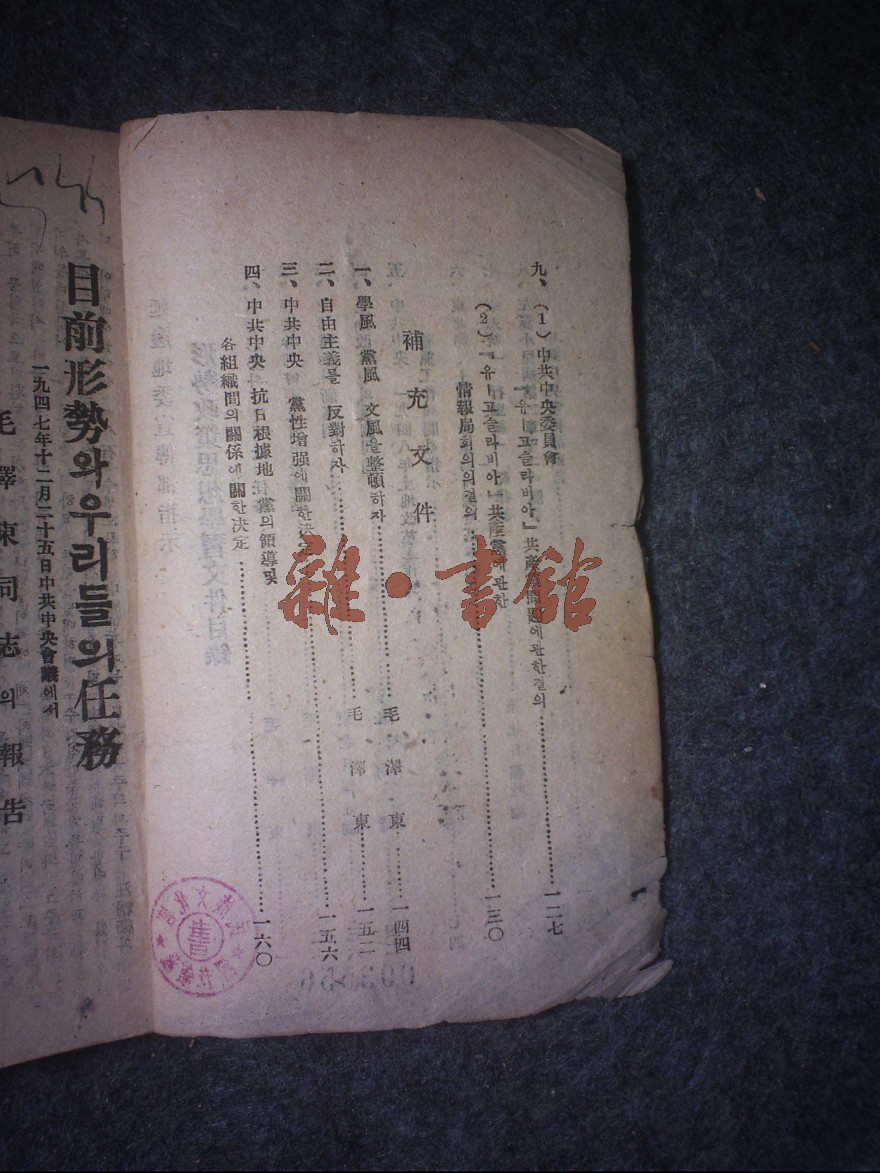 九、(1)中共中央委員會
「유-고슬라비아」共產黨問題에관한결의……一二七
(2)「유-고슬라비아」共產黨에관한
情報局회의의결의……一三〇
補充文件
一、學風 黨風 文風을整頓하자……毛澤東……一四四
二、自由主義를 反對하자……毛澤東……一五二
三、中共中央의 黨性增强에關한決定……一五六
四、中共中央의 抗日根據地任黨의領導및
各組織間의關係에關한決定……一六〇
雜·書館
目前形勢와우리들의任務
一九四七年十二月二十五日中共中央會議에서
毛澤東同志의報告